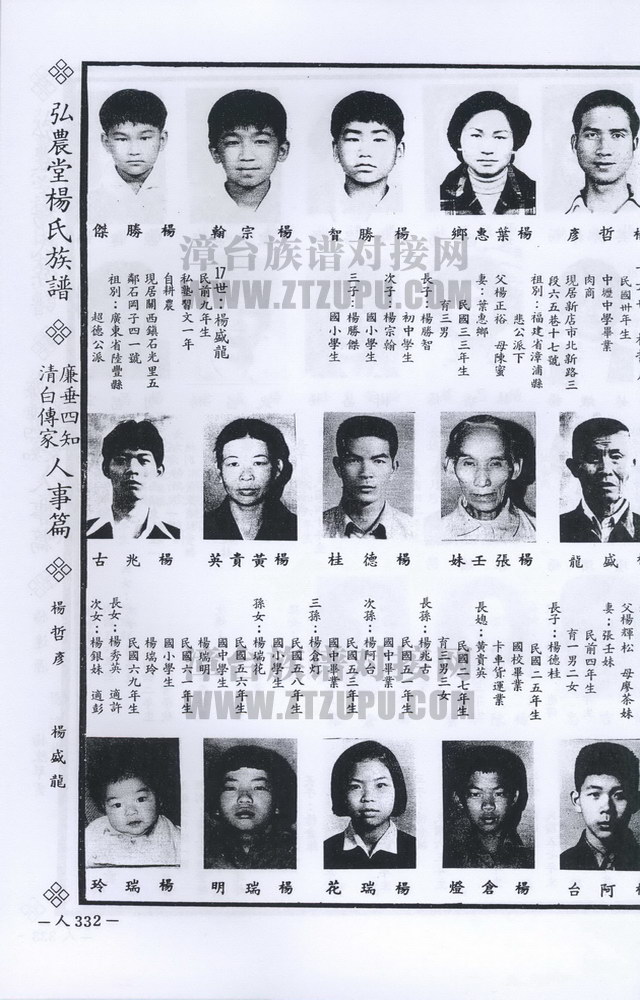 弘農堂楊氏族譜
廉垂四知
清白傳家
人事篇
楊哲彥
楊盛龍
哲彥
楊葉惠鄉
楊勝智
楊宗翰
楊勝傑
民國卅年生
中壢中學畢業
肉商
現居新店市北新路三
段六五巷十七號
祖別:福建省漳浦縣
悲公派下
父楊正裕 母陳蜜
妻:葉惠鄉
民國三三年生
育三男
長子:楊勝智
初中學生
次子:楊宗翰
國小學生
三子:楊勝傑
國小學生
17世:楊盛龍
民前九年生
私塾習文一年
自耕農
現居關西鎮石光里五
鄰石岡子四一號
祖別:廣東省陸豐縣
超德公派
漳台族谱对接网
WWW.ZTZUPU.COM
盛龍
楊張壬妹
楊德桂
楊黃貴英
楊兆古
父楊輝松 母廖茶妹
妻:張壬妹
民前四年生
育一男二女
長子:楊德桂
民國二五年生
國校畢業
卡車貨運業
長媳:黃貴英
民國二七年生
育三男三女
長孫:楊兆古
民國五一年生
國中畢業
次孫:楊阿台
民國五三年生
國中畢業
三孫:楊倉燈
民國五八年生
國小學生
孫女:楊瑞花
民國五六年生
國中學生
楊瑞明
民國六一年生
國小學生
楊瑞玲
民國六九年生
長女:楊秀英 適許
次女:楊銀妹 適彭
漳台族谱对接网
WWW.ZTZUPU.COM
楊阿台
楊倉燈
楊瑞花
楊瑞明
楊瑞玲
—人332—